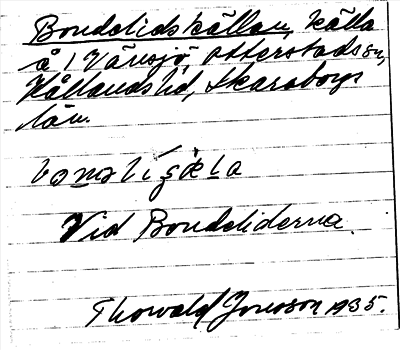 Bondelidskällan, källa
å 1 Vänsjö, Otterstads sn,
Kållands hd, Skaraborgs
län.
Vid Bondeliderna.
Thorvald Jonsson 1935.